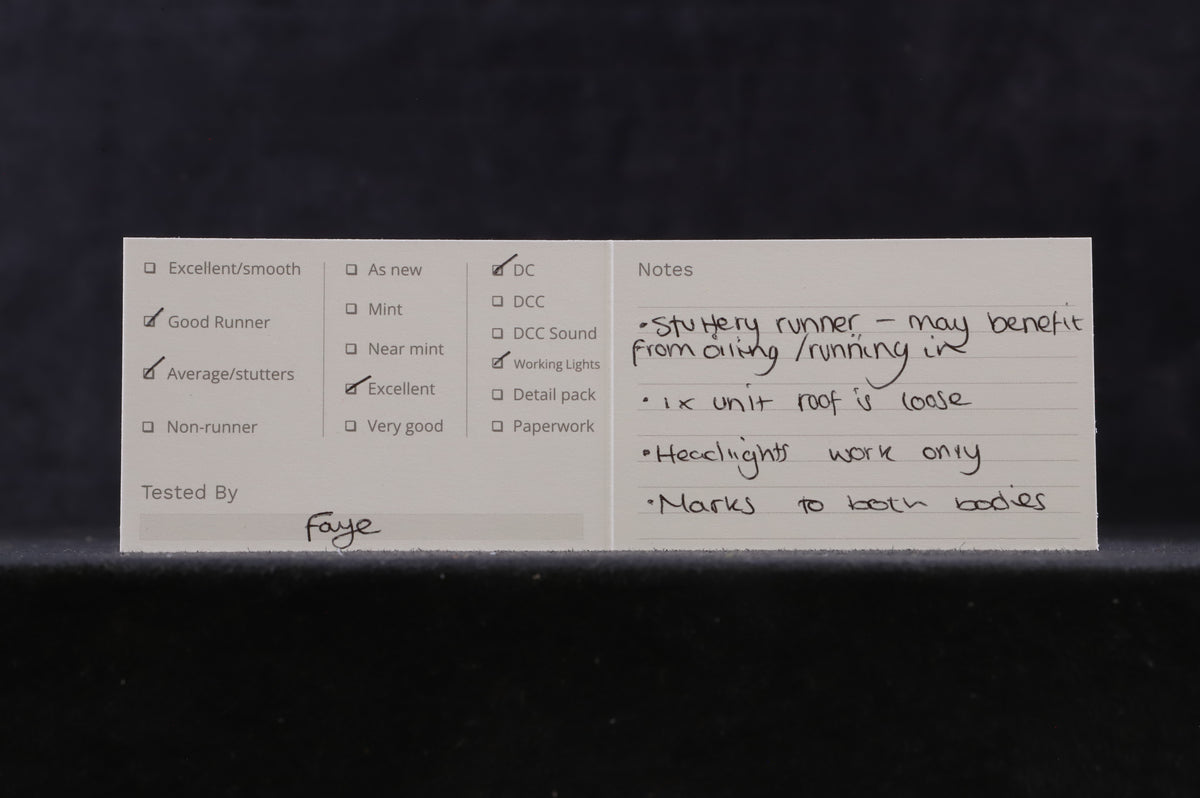 Excellent/smooth
Good Runner
Average/stutters
Non-runner
As new
Mint
Near mint
Excellent
Very good
DC
DCC
DCC Sound
Working Lights
Detail pack
Paperwork
Tested By
Faye
Notes
• Stuttery runner - may benefit
from oiling /running in
• 1x unit roof is loose
• Headlights work only
• Marks to both bodies